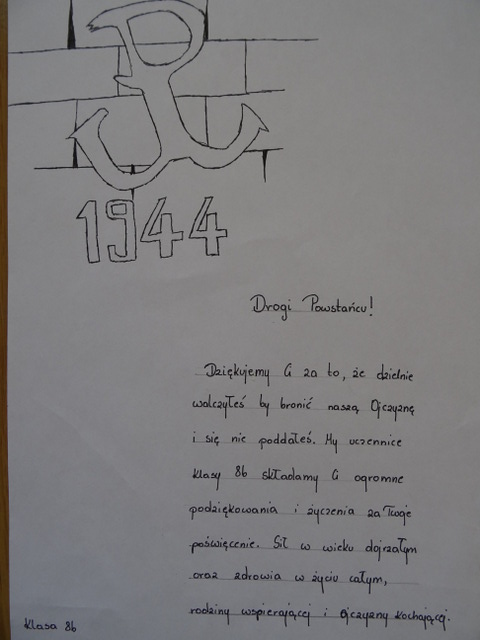 1944
Drogi Powstańcu!
Dziękujemy Ci za to, że dzielnie
walczyłeś by bronić naszą Ojczyznę
i się nie poddałeś. My uczennice
klasy 8b składamy Ci ogromne
podziękowania i życzenia za Twoje
poświęcenie. Sił w wieku dojrzałym
oraz zdrowia w życiu całym,
rodziny wspierającej i ojczyzny kochającej.
Klasa 8b